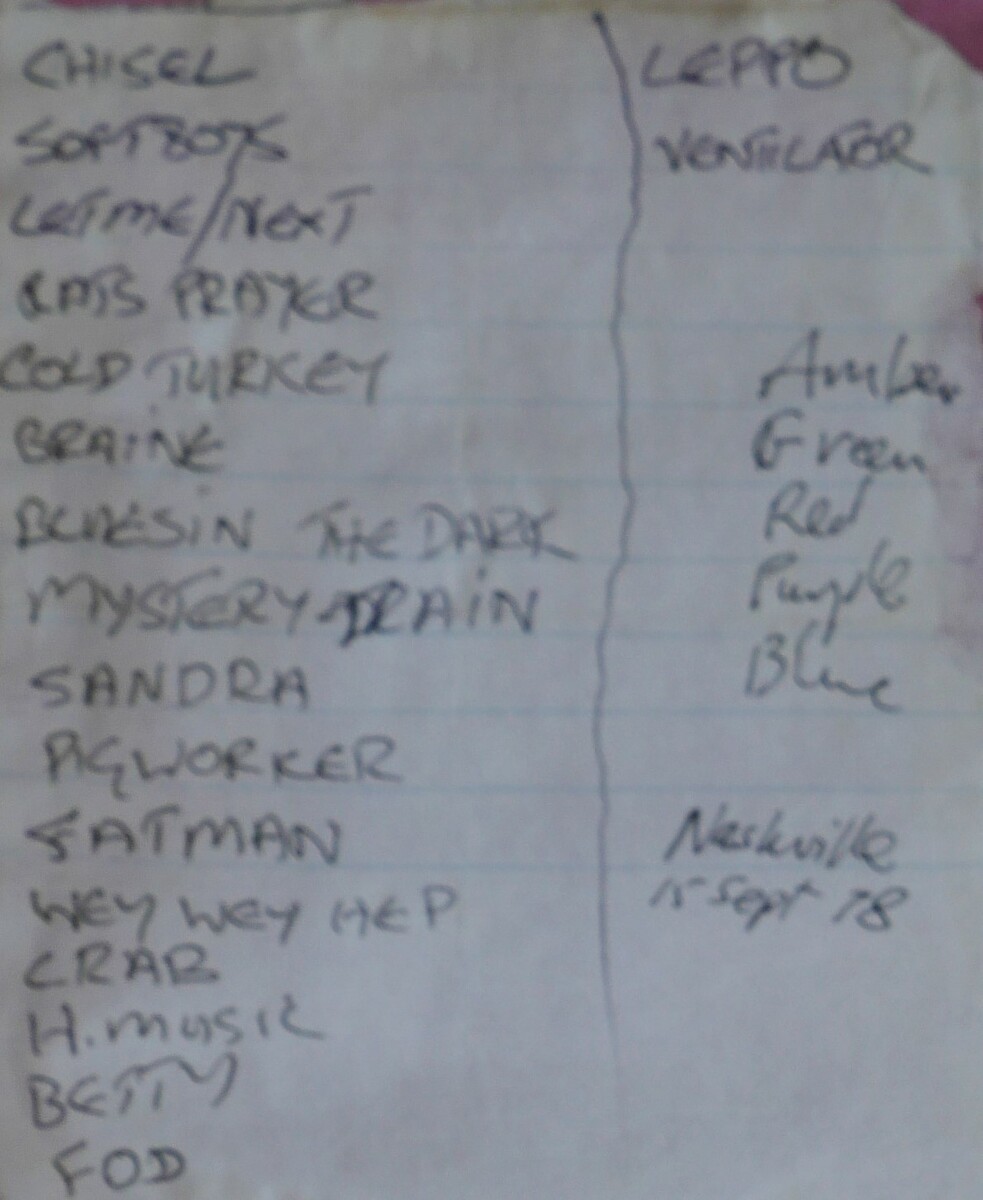 CHISEL
SOFT BOYS
LET ME/NEXT
RATS PRAYER
COLD TURKEY
BRAINE
BLUES IN THE DARK
MYSTERY TRAIN
SANDRA
PIGWORKER
FATMAN
WEY WEY HEP
CRAB
H. MUSIC
BETTY
FOD
LEPPO
VENTILATOR
Amber
Green
Red
Purple
Blue
Nashville
15 Sept 78